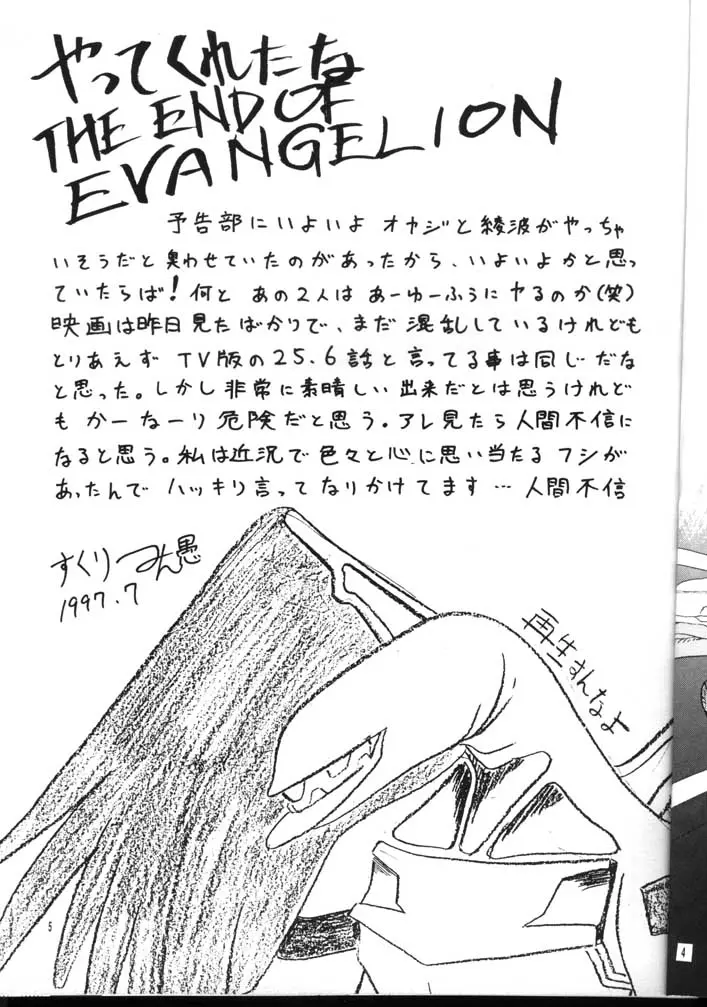 やってくれたな
THE END OF
EVANGELION
予告部にいよいよ オヤジと綾波がやっちゃ
いそうだと臭わせていたのがあったから、いよいよかと思っ
ていたらば!何と あの2人は あーゆーふうにヤるのか(笑)
映画は昨日見たばかりで、まだ 混乱しているけれども
とりあえず TV版の25.6話と言ってる事は同じだな
と思った。しかし非常に素晴しい出来だとは思うけれど
も かーなーり 危険だと思う。アレ見たら人間不信に
なると思う。私は近況で色々と心に思い当たるフシが
あったんで ハッキリ言ってなりかけてます…人間不信
すくりーん愚
1997.7
再生すんなよ
5
4